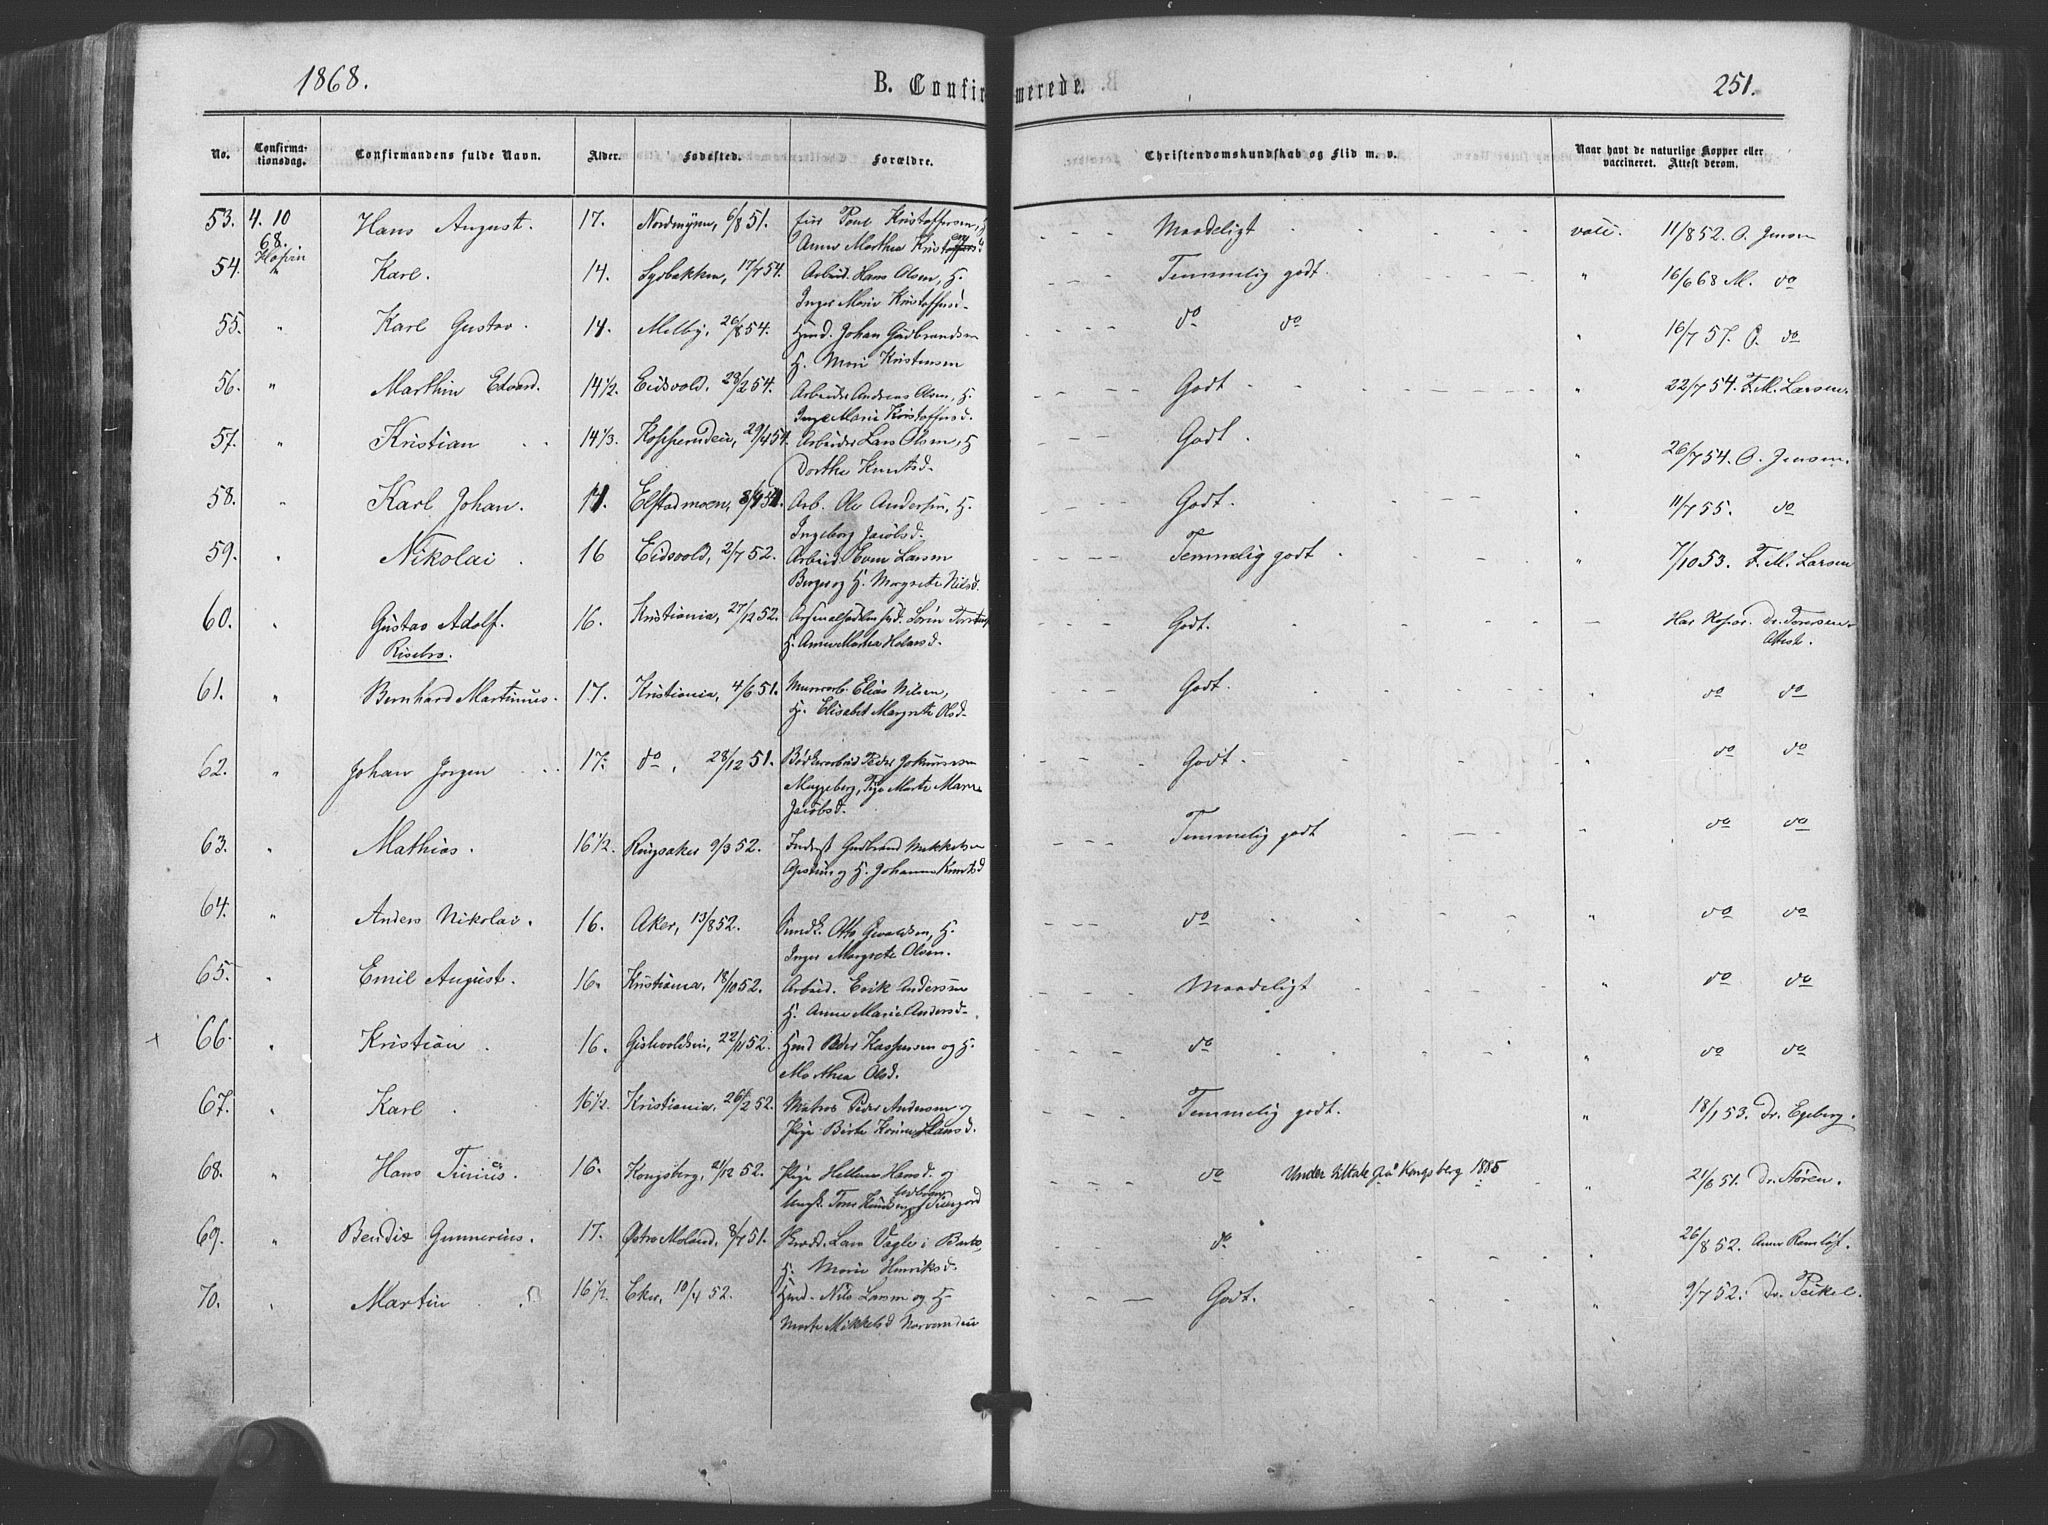 1868.
B. Confirmerede.
251.
No.
Confirma-
tionsdag.
Confirmandens fulde Navn.
Alder.
Fødested.
Forældre.
Christendomskundskab og Flid m. v.
Naar havt de naturlige Kopper eller
vaccineret. Attest derom.
53. 4. 10 Hans August. 17. 6/8 51. Poul Kristoffersen, H. Maadeligt vacc. 11/8 52. O. Jensen
68. Anne Marthea
54. Karl. 14. Sydbakken, 17/7 54. Arbeid. Hans Olsen, H. Temmelig godt. " 16/6 68 M. do
Inger Marie Kristoffersd.
55. " Karl Gustav. 14. Melby, 26/8 54. Gudbrandsen do do " 16/7 57. O. do
Johan
H. Mari Kristensen
56. " Marthin Edvard. 14 1/2. Eidsvold, 28/2 54. Arbeider Andreas Olsen, H. Godt " 22/7 54. F. M. Larsen.
Inge Marie Kristoffersd.
57. " Kristian 14 1/3. Kopperudeie, 29/4 54. Arbeider Lars Olsen, H. Godt. " 26/7 54. O. Jensen.
Dorthe Knutsd.
58. " Karl Johan. 14. Elstadmoen, Arb. Ole Andersen, H. Godt. " 11/7 55. do
Ingeborg Jacobsd.
59. " Nikolai 16 Eidsvold, 2/7 52. Arbeid. Even Larsen Temmelig godt " 7/10 53. F. M. Larsen
Berger og H. Margrete Nilsd.
60. " Gustav Adolf. 16. Kristiania, 27/12 52. Godt. Har Kopar. Dr. Attest.
Risebro. H. Anne Mathea
61. " Bernhard Martinus. 17. Kristiania, 4/6 51. Murarb. Elias Nilsen, Godt. " do do
H. Elisabet Margrete Olsd.
62. " Johan Jørgen 17. do, 28/12 51. Peder Godt. " do do
Pige Marte Marie
Jacobsd.
63. " Mathias. 16 1/2. Ringsaker 9/3 52. Inderst Gudbrand Mikkelsen Temmelig godt " do do
og H. Johanne Knutsd
64. " Anders Nikolai. 16. Aker, 13/8 52. Otto H. do " do do
Inger Margrete Olsen.
65. " Emil August. 16. Kristiania, 18/10 52. Arbeid. Erik Andersen Maadeligt " do do
H. Anne Marie Andersd.
x 66. " Kristian 16. 22/11 52. Hmd Peder Kaspersen og H. do " do do
Marthea Olsd.
67. " Karl 16 1/2. Kristiania, 26/2 52. Matros Peder Andersen og Temmelig godt. " 18/1 53. Dr. Egeberg.
Pige Berte Hansd.
68. " Hans Tinius. 16. Kongsberg, 21/12 52. Pige Hellene Hansd. og do Under tiltale på Kongsberg 1885 " 21/6 51. Dr. Støren.
Ungk. Tore Knudsen
69. " Bendix Gunnerius. 17. Østre Moland, 8/7 51. Lars Vagle i do. " 26/8 52. Anne
H. Marie Henriksd.
70. " Martin 16 1/2. Eker, 10/4 52. Hmd. Nils Larsen og H. Godt. " 9/7 52. Dr.
Marte Mikkelsd